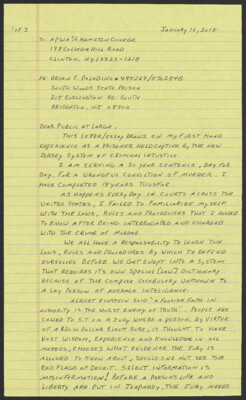 1 of 3
January 16, 2018
To: APWA % Hamilton College
198 College Hill Road
Clinton, NY 13323-1218
FR: Brian E. Paladino
South Woods State Prison
215 Burlington Rd. South
Bridgeton, NJ 08302
Dear Public at Large,
This letter/essay draws on my first hand
experience as a prisoner held captive by the new
Jersey system of criminal injustice.
I am serving a 30 year sentence, day for
day, for a wrongful conviction of murder. I
have completed 18 years thusfar.
As happens every day in courts across the
United States, I failed to familiarize myself
with the laws, rules and procedures that I needed
to know after being interrogated and charged
with the crime of murder.
We all have a responsibility to learn the
laws, rules and procedures by which to defend
ourselves before we get swept into a system
that requires its own special [law] dictionary
because of the complex vocabulary unknown to
a lay person of average intelligence.
Albert Einstein said "a foolish faith in
authority is the worst enemy of truth". People are
called to sit on a jury where a person, by virtue
of a black robe, is thought to have
vast wisdom, experience and knowledge in all
matters, chooses what evidence the jury is
allowed to know about, should one not see the
red flags of deceit. Select information is
misinformation! Before a person's life and
liberty are put in jeopardy, the jury needs